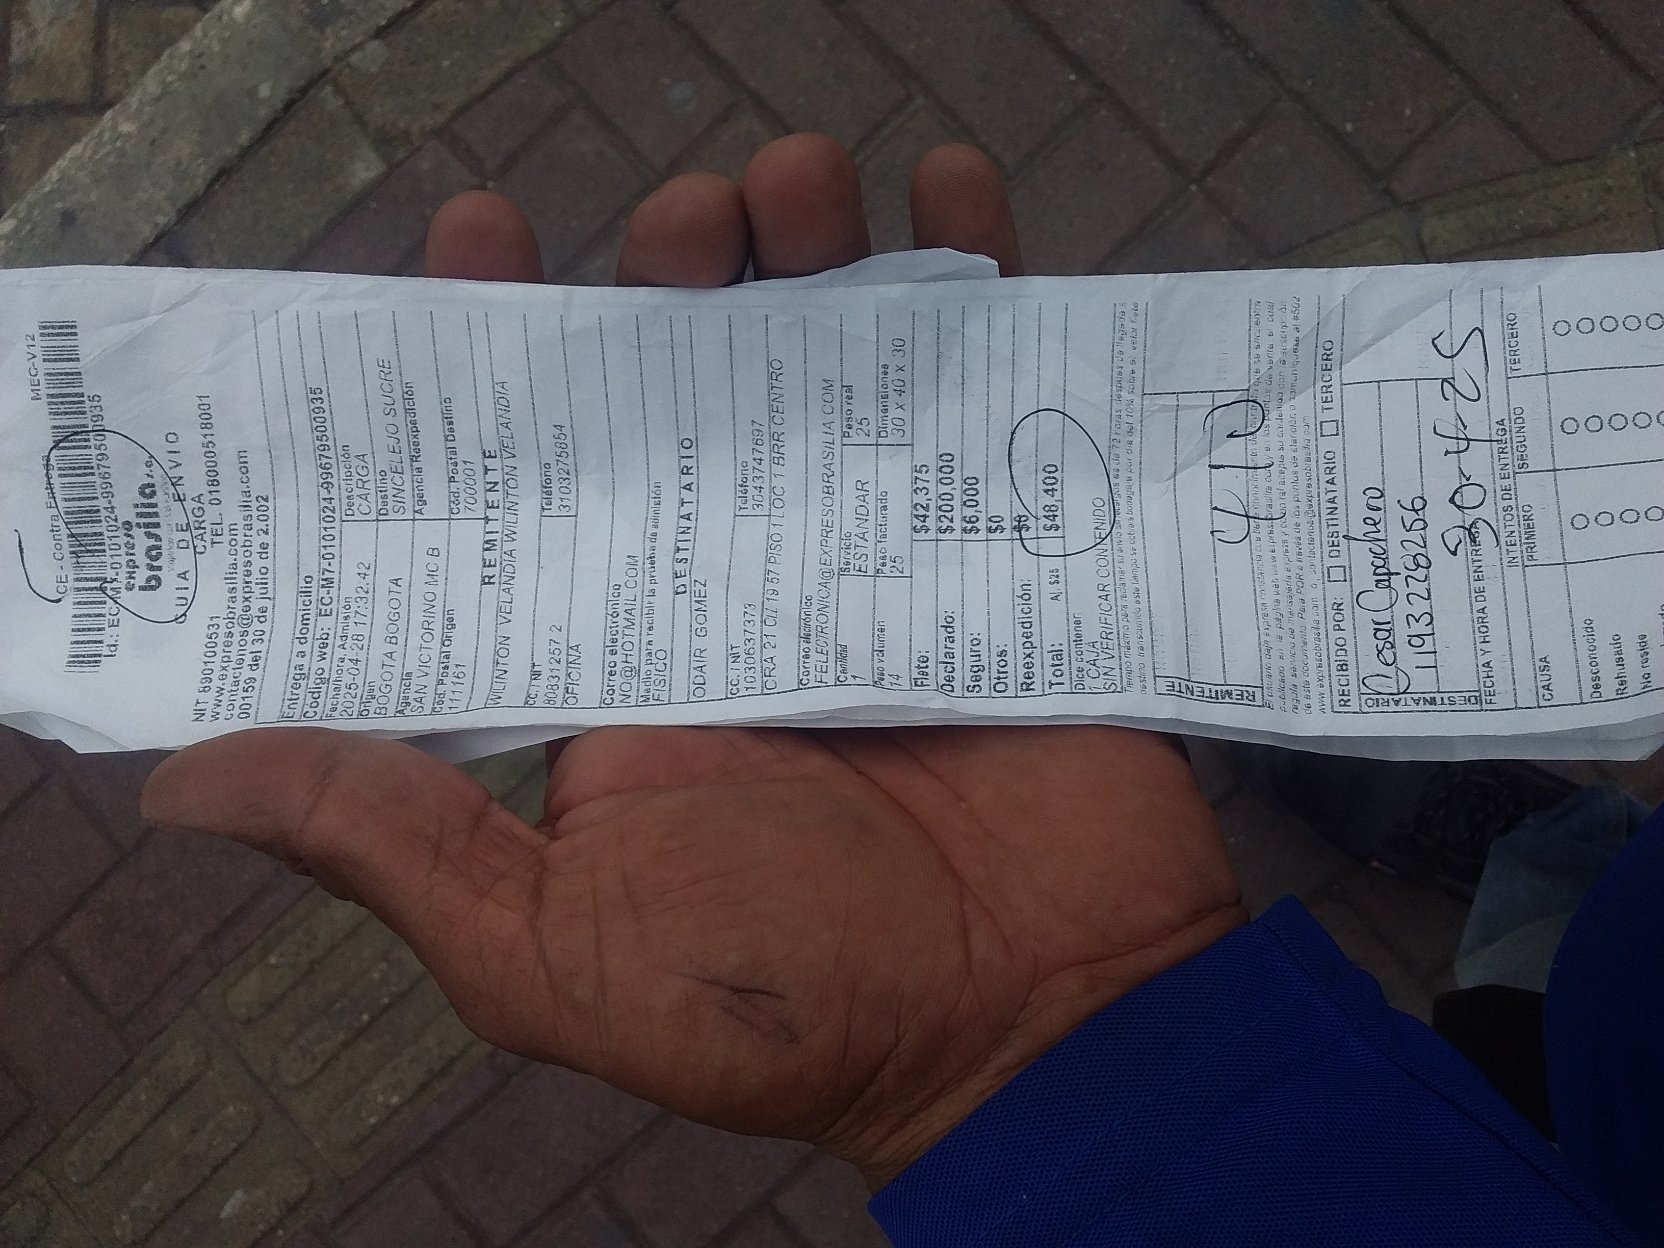 CE - Contra Entrega
MEC-V12
Id.: EC-M7-0101024-99679500935
expreso
brasilia s.a.
GUIA DE ENVIO
CARGA
NIT 890100531 TEL. 018000518001
www.expresobrasilia.com
contactenos@expresobrasilia.com
00159 del 30 de julio de 2.002
Entrega a domicilio
Código web: EC-M7-0101024-99679500935
Fecha/hora Admisión
2025-04-28 17:32:42
Descripción
CARGA
Origen
BOGOTA BOGOTA
Destino
SINCELEJO SUCRE
Agencia
SAN VICTORINO MC B
Agencia Reexpedición
Cód. Postal Origen
111161
Cód. Postal Destino
700001
REMITENTE
WILINTON VELANDIA WILINTON VELANDIA
CC. / NIT
80831257 2
Teléfono
3103275854
OFICINA
Correo electrónico
NO@HOTMAIL.COM
Medio para recibir la prueba de admisión
FISICO
DESTINATARIO
ODAIR GOMEZ
CC. / NIT
1030637373
Teléfono
3043747697
CRA 21 CLL 19 57 PISO 1 LOC 1 BRR CENTRO
Correo electrónico
FELECTRONICA@EXPRESOBRASILIA.COM
Cantidad
1
Servicio
ESTANDAR
Peso real
25
Peso volumen
14
Peso facturado
25
Dimensiones
30 x 40 x 30
Flete: $42,375
Declarado: $200,000
Seguro: $6,000
Otros: $0
Reexpedición: $0
Total: Aj. $25 $48,400
Dice contener:
1 CAJA
SIN VERIFICAR CONTENIDO
REMITENTE
RECIBIDO POR: DESTINATARIO TERCERO
DESTINATARIO
Cesar Capachero
11932278256
FECHA Y HORA DE ENTREGA
30-4-25
INTENTOS DE ENTREGA
CAUSA PRIMERO SEGUNDO TERCERO
Desconocido
Rehusado
No reside